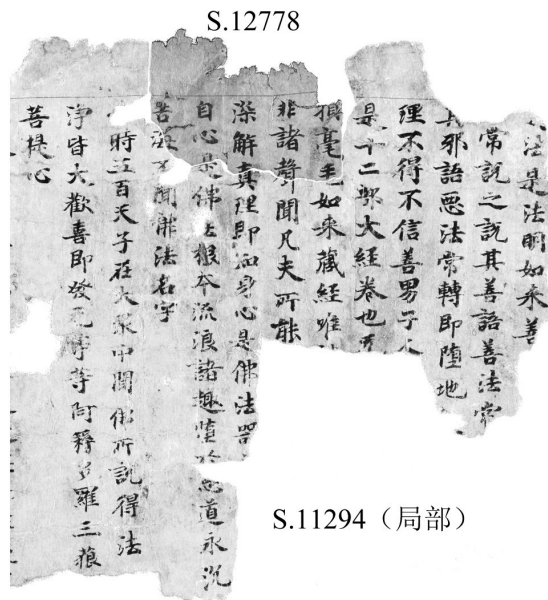 S.12778
法是法明如来善
常説之説其善語善法常
邪語惡法常轉即墮地
理不得不信善男子人
是十二部大經卷也
損毫毛如来藏經唯
非諸聲聞凡夫所能
染解真理即知身心是佛法器
自心是佛法根本流浪諸趣墮於惡道永沉
苦海不聞佛法名字
時五百天子在大衆中聞佛所説得法
淨皆大歡喜即發无等等阿耨多羅三藐
菩提心
S.11294（局部）